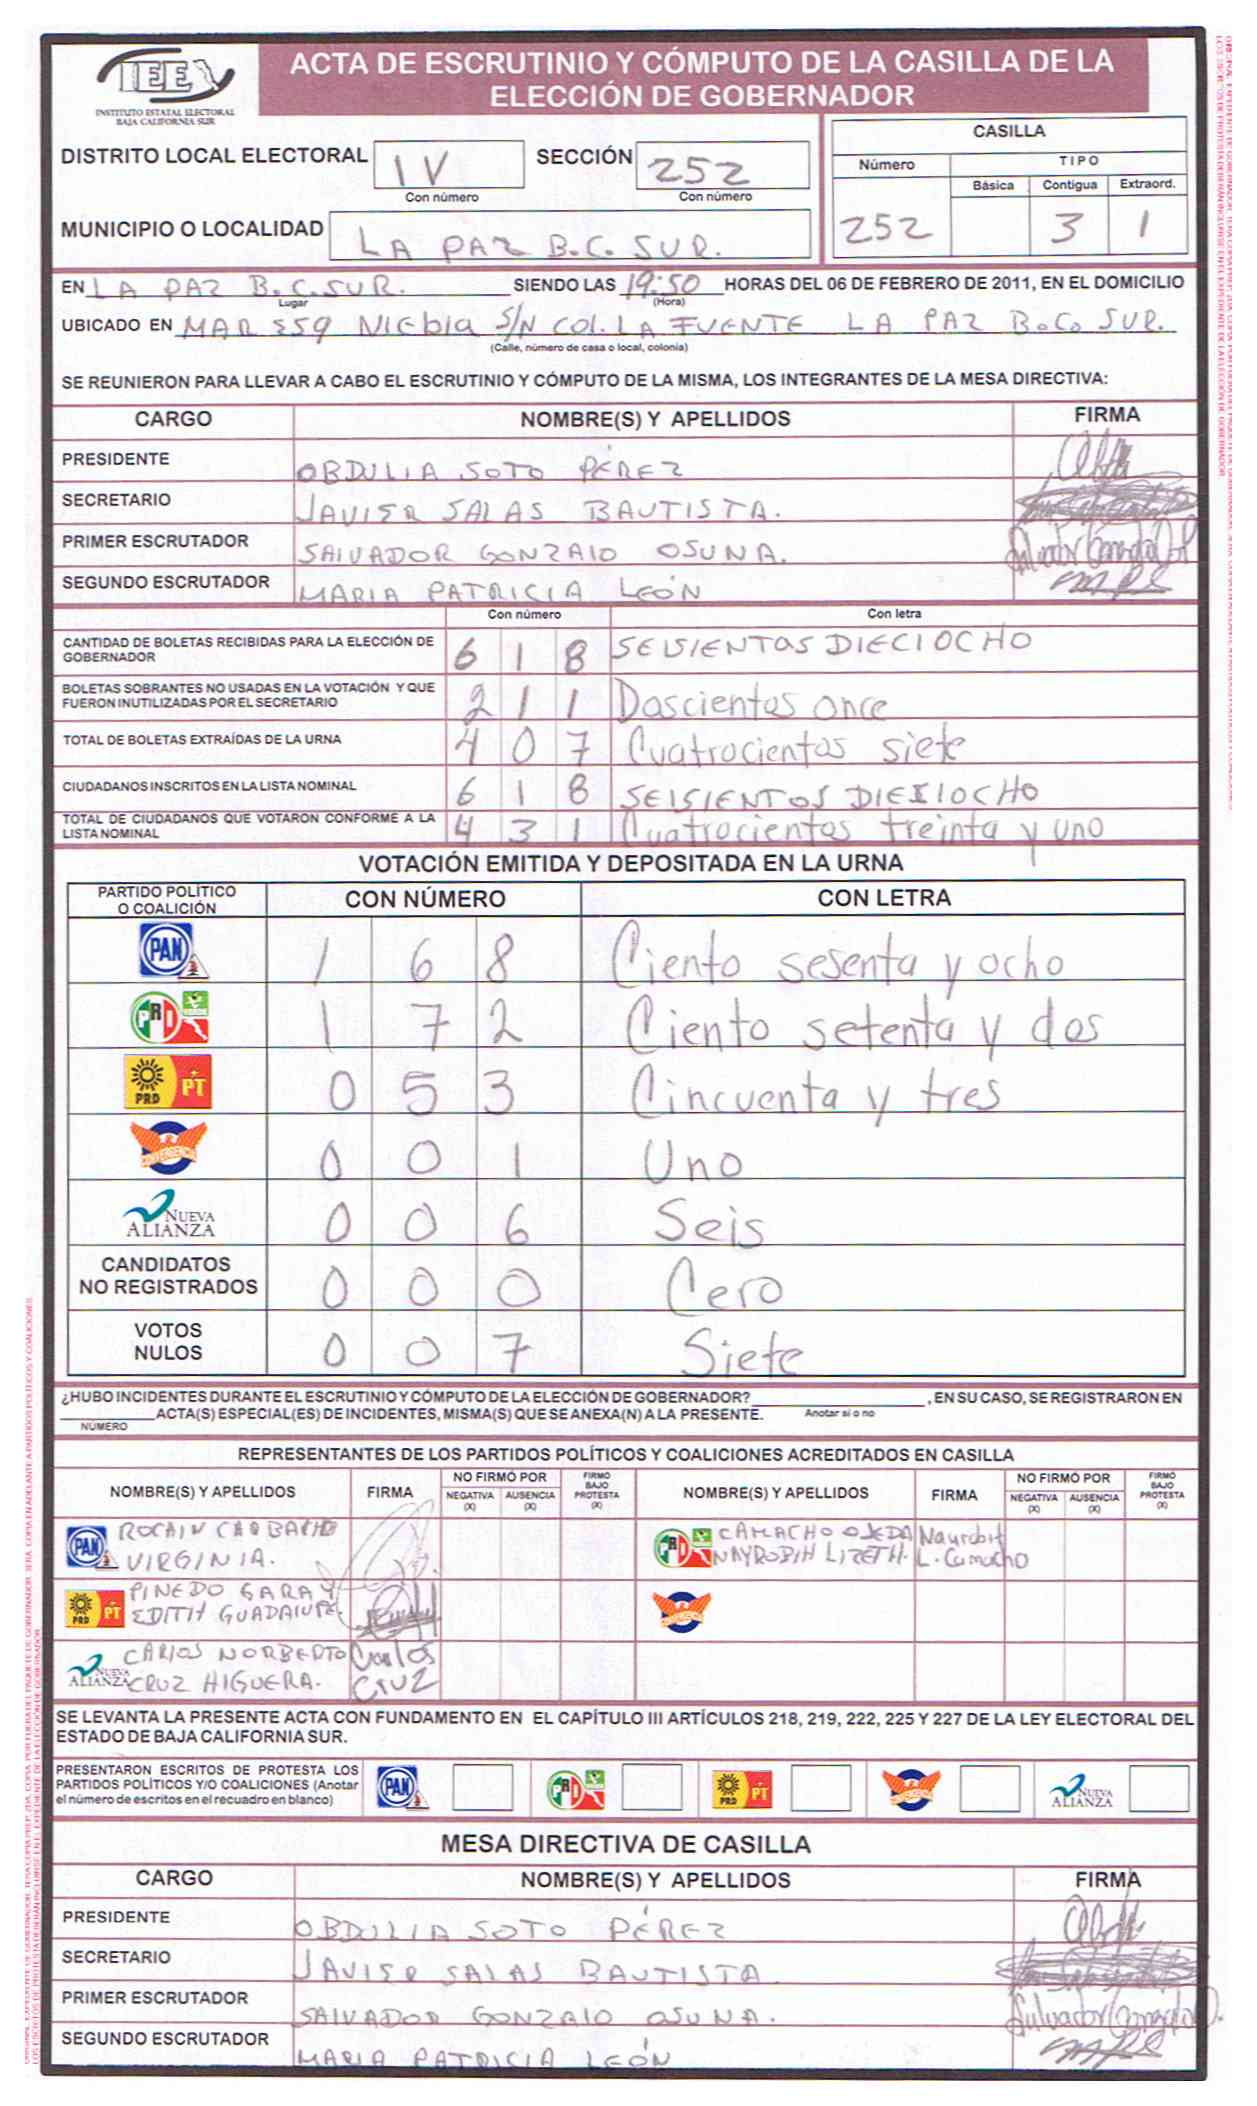 IEE
INSTITUTO ESTATAL ELECTORAL
BAJA CALIFORNIA SUR
ACTA DE ESCRUTINIO Y CÓMPUTO DE LA CASILLA DE LA
ELECCIÓN DE GOBERNADOR
DISTRITO LOCAL ELECTORAL IV SECCIÓN 252
Con número Con número
MUNICIPIO O LOCALIDAD LA PAZ B.C. SUR.
CASILLA
Número TIPO
Básica Contigua Extraord.
252 3 1
EN LA PAZ B.C.SUR. SIENDO LAS 19:50 HORAS DEL 06 DE FEBRERO DE 2011, EN EL DOMICILIO
Lugar (Hora)
UBICADO EN MAR ESQ NIEBLA S/N COL. LA FUENTE LA PAZ B.C. SUR.
(Calle, número de casa o local, colonia)
SE REUNIERON PARA LLEVAR A CABO EL ESCRUTINIO Y CÓMPUTO DE LA MISMA, LOS INTEGRANTES DE LA MESA DIRECTIVA:
CARGO NOMBRE(S) Y APELLIDOS FIRMA
PRESIDENTE OBDULIA SOTO PÉREZ
SECRETARIO JAVIER SALAS BAUTISTA.
PRIMER ESCRUTADOR SALVADOR GONZALO OSUNA.
SEGUNDO ESCRUTADOR MARIA PATRICIA LEÓN
Con número Con letra
CANTIDAD DE BOLETAS RECIBIDAS PARA LA ELECCIÓN DE
GOBERNADOR 6 1 8 SEISIENTOS DIECIOCHO
BOLETAS SOBRANTES NO USADAS EN LA VOTACIÓN Y QUE
FUERON INUTILIZADAS POR EL SECRETARIO 2 1 1 Doscientos once
TOTAL DE BOLETAS EXTRAÍDAS DE LA URNA 4 0 7 Cuatrocientos siete
CIUDADANOS INSCRITOS EN LA LISTA NOMINAL 6 1 8 SEISIENTOS DIEZIOCHO
TOTAL DE CIUDADANOS QUE VOTARON CONFORME A LA
LISTA NOMINAL 4 3 1 Cuatrocientos treinta y uno
VOTACIÓN EMITIDA Y DEPOSITADA EN LA URNA
PARTIDO POLÍTICO
O COALICIÓN CON NÚMERO CON LETRA
PAN 1 6 8 Ciento sesenta y ocho
PRI VERDE 1 7 2 Ciento setenta y dos
PRD PT 0 5 3 Cincuenta y tres
CONVERGENCIA 0 0 1 Uno
NUEVA ALIANZA 0 0 6 Seis
CANDIDATOS
NO REGISTRADOS 0 0 0 Cero
VOTOS
NULOS 0 0 7 Siete
¿HUBO INCIDENTES DURANTE EL ESCRUTINIO Y CÓMPUTO DE LA ELECCIÓN DE GOBERNADOR? , EN SU CASO, SE REGISTRARON EN
ACTA(S) ESPECIAL(ES) DE INCIDENTES, MISMA(S) QUE SE ANEXA(N) A LA PRESENTE. Anotar si o no
NÚMERO
REPRESENTANTES DE LOS PARTIDOS POLÍTICOS Y COALICIONES ACREDITADOS EN CASILLA
NOMBRE(S) Y APELLIDOS FIRMA NO FIRMÓ POR NEGATIVA (X) AUSENCIA (X) FIRMÓ BAJO PROTESTA (X) NOMBRE(S) Y APELLIDOS FIRMA NO FIRMÓ POR NEGATIVA (X) AUSENCIA (X) FIRMÓ BAJO PROTESTA (X)
PAN ROCAIN CARBALLO PRI VERDE CAMACHO OJEDA Nayrobit
VIRGINIA. NAYROBIH LIZETH. L. Camacho
PRD PT PINEDO GARAY CONVERGENCIA
EDITH GUADALUPE.
NUEVA ALIANZA CARLOS NORBERTO Carlos
CRUZ HIGUERA. Cruz
SE LEVANTA LA PRESENTE ACTA CON FUNDAMENTO EN EL CAPÍTULO III ARTÍCULOS 218, 219, 222, 225 Y 227 DE LA LEY ELECTORAL DEL
ESTADO DE BAJA CALIFORNIA SUR.
PRESENTARON ESCRITOS DE PROTESTA LOS
PARTIDOS POLÍTICOS Y/O COALICIONES (Anotar
el número de escritos en el recuadro en blanco) PAN PRI VERDE PRD PT CONVERGENCIA NUEVA ALIANZA
MESA DIRECTIVA DE CASILLA
CARGO NOMBRE(S) Y APELLIDOS FIRMA
PRESIDENTE OBDULIA SOTO PÉREZ
SECRETARIO JAVIER SALAS BAUTISTA
PRIMER ESCRUTADOR SALVADOR GONZALO OSUNA.
SEGUNDO ESCRUTADOR MARIA PATRICIA LEÓN